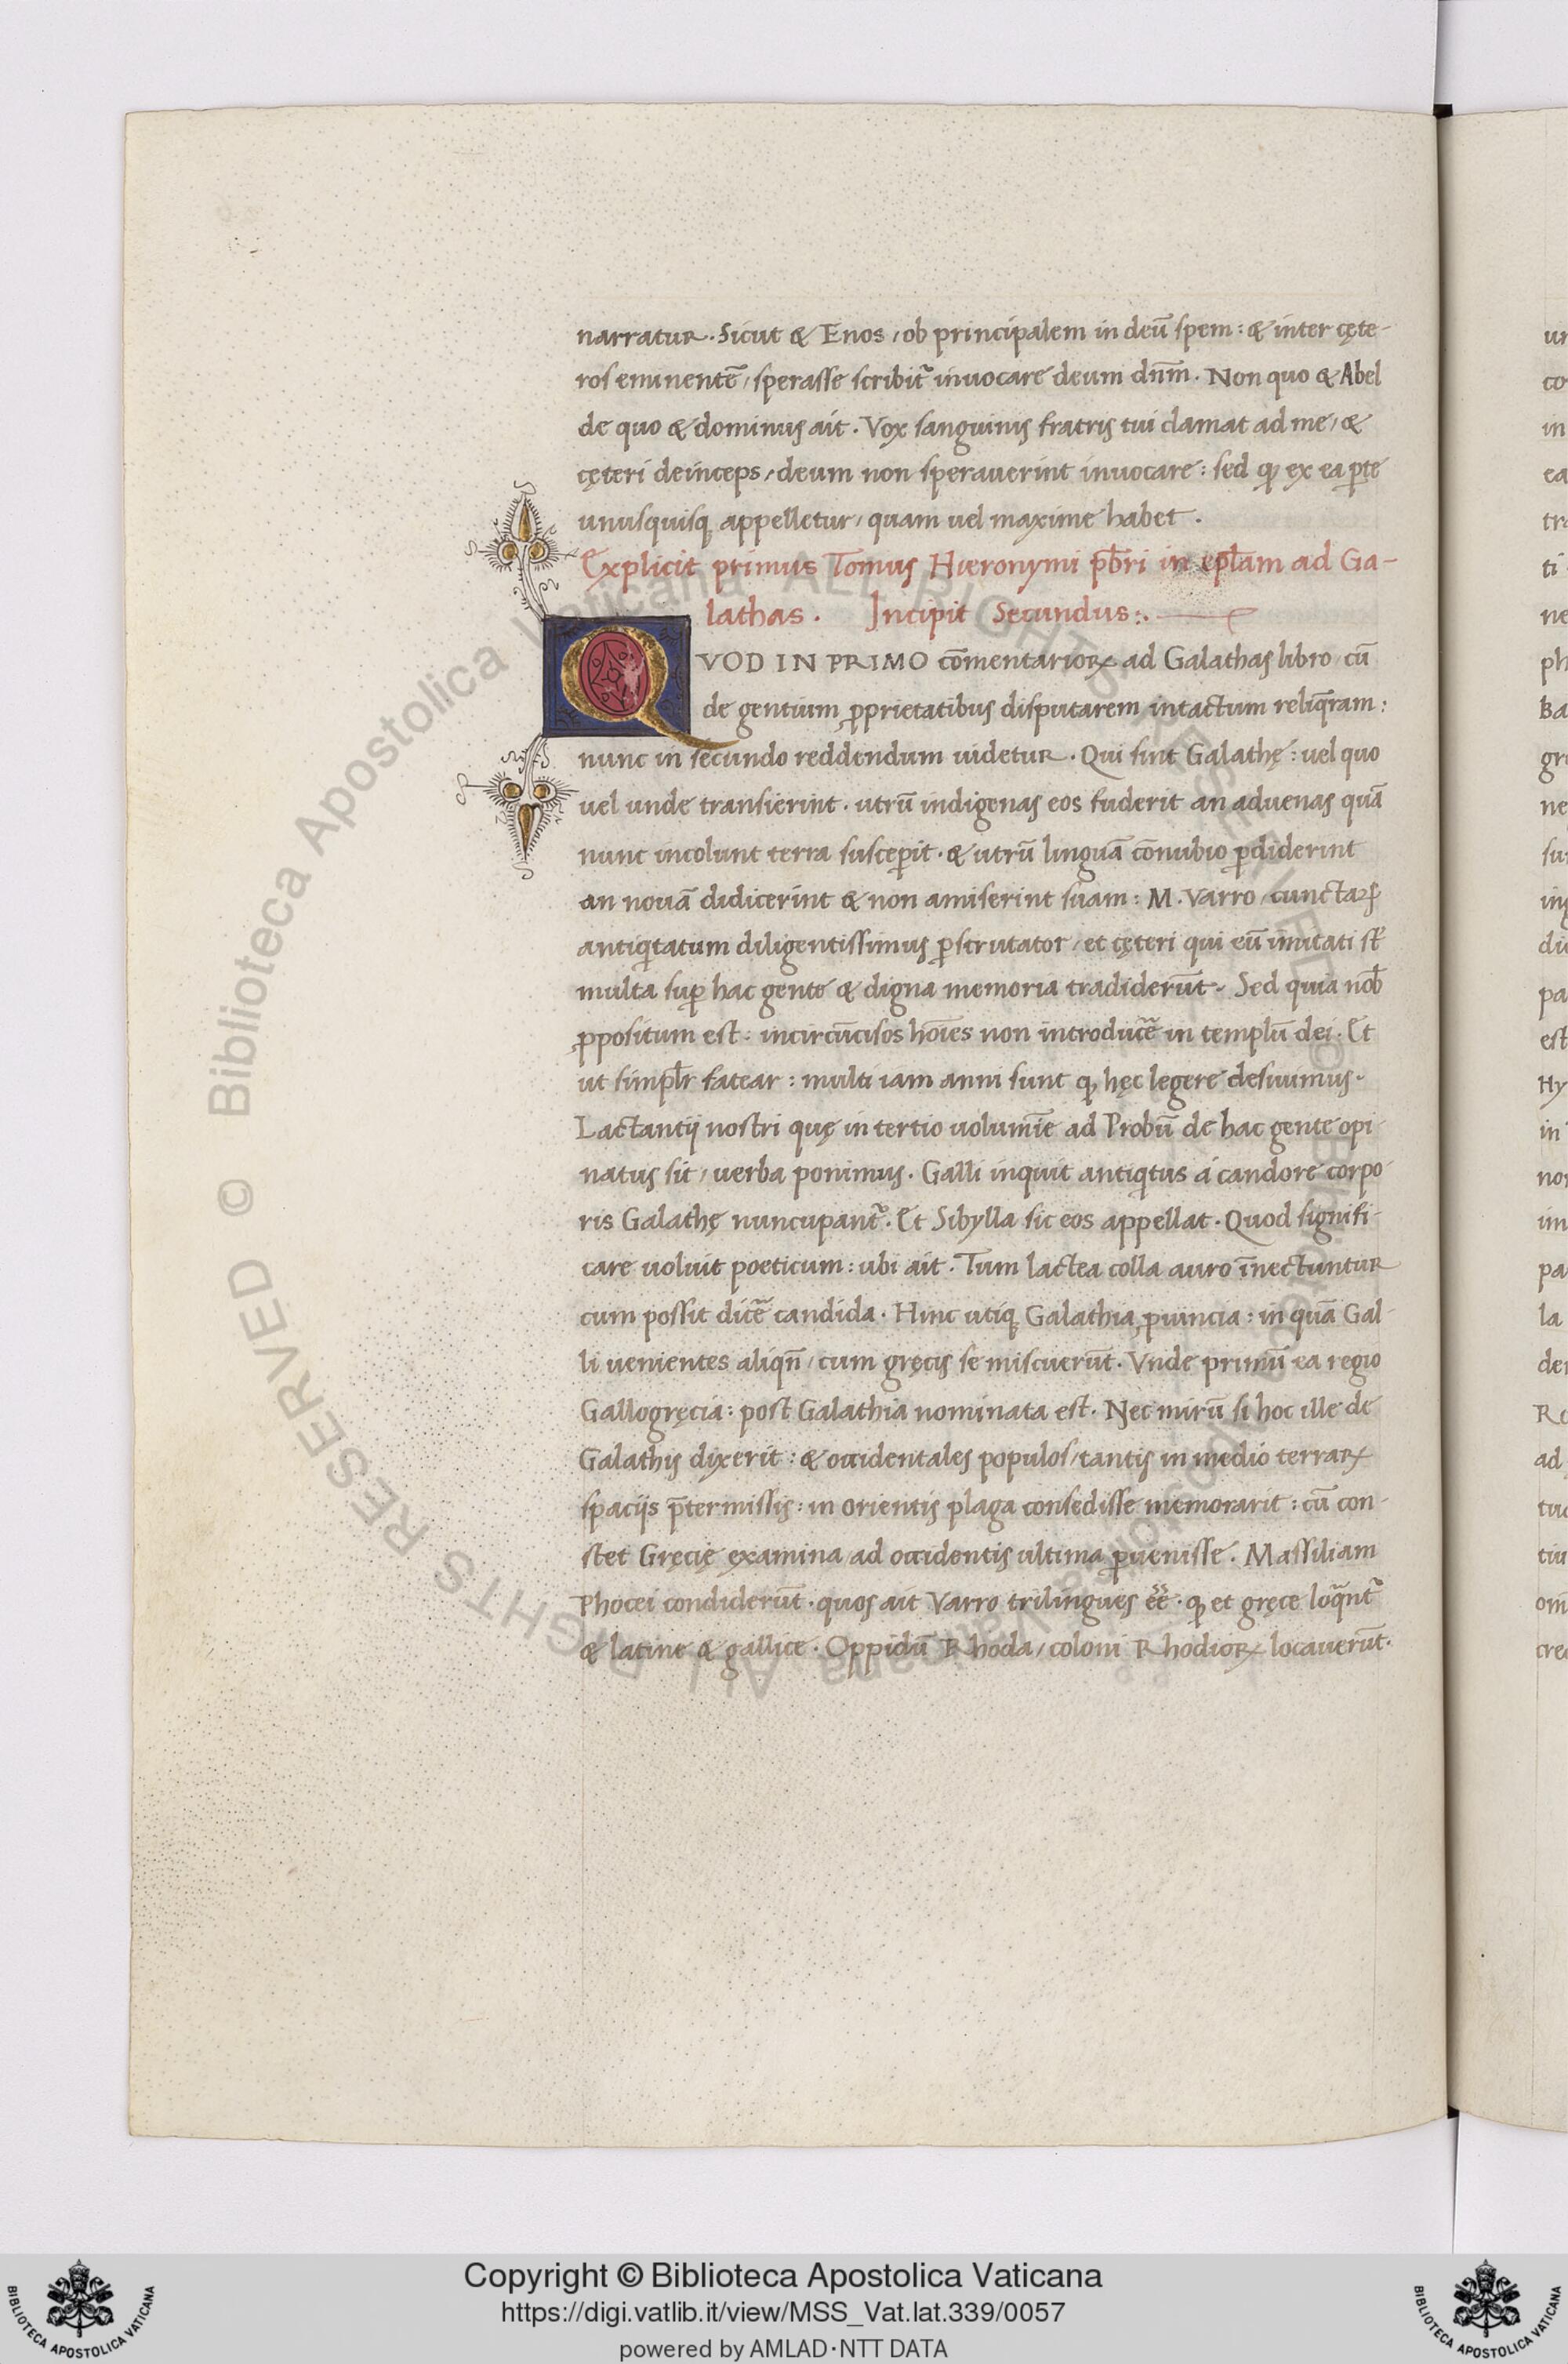 narratur. Sicut & Enos, ob principalem in deū spem: & inter cęte-
ros eminentē, sperasse scribit᷑ inuocare deum dn̄m. Non quo & Abel
de quo & dominus ait. Vox sanguinis fratris tui clamat ad me, &
cęteri deinceps, deum non sperauerint inuocare: sed ꝙ ex ea ꝑte
unusquisq̨ appelletur, quam uel maxime habet.
Explicit primus Tomus Hieronymi p̄b̄ri in ep̄l̄am ad Ga-
lathas. Incipit Secundus:.
QVOD IN PRIMO cōmentarioꝝ ad Galathas libro, cū
de gentium ꝓprietatibus disputarem intactum reliq̄ram:
nunc in secundo reddendum uidetur. Qui sint Galathę: uel quo
uel unde transierint. utrū indigenas eos fuderit an aduenas quā
nunc incolunt terra susceꝑit. & utrū linguā cōnubio ꝑdiderint
an nouā didicerint & non amiserint suam: M. Varro, cunctaꝝ
antiq̇tatum diligentissimus ꝑscrutator, et cęteri qui eū imitati st̄
multa suꝑ hac gente & digna memoria tradiderūt. Sed quia nob̄
ꝓpositum est: incircūcisos hōies non introducē in templū dei. Et
ut simpl̄r fatear: multi iam anni sunt ꝙ hęc legere desiuimus.
Lactantij nostri quę in tertio uolumīe ad Probū de hac gente opi-
natus sit, uerba ponimus. Galli inquit antiq̇tus á candore corpo-
ris Galathę nuncupant᷑. Et Sibylla sic eos appellat. Quod signifi-
care uoluit poeticum: ubi ait. Tum lactea colla auro īnectuntur
cum possit dicē candida. Hinc utiq̨ Galathia ꝓuincia: in quā Gal-
li uenientes aliqn̄, cum gręcis se miscuerūt. Vnde primū ea regio
Gallogręcia: post Galathia nominata est. Nec mirū si hoc ille de
Galathis dixerit: & occidentales populos, tantis in medio terraꝝ
spacijs p̄termissis: in orientis plaga consedisse memorarit: cū con-
stet Gręcię examina ad occidentis ultima ꝑuenisse. Massiliam
Phocei condiderūt. quos ait Varro trilingues eē̄. ꝙ et gręce loq̄nt᷑
& latine & gallice. Oppidū Rhoda, coloni Rhodioꝝ locauerūt.
Copyright © Biblioteca Apostolica Vaticana
https://digi.vatlib.it/view/MSS_Vat.lat.339/0057
powered by AMLAD·NTT DATA